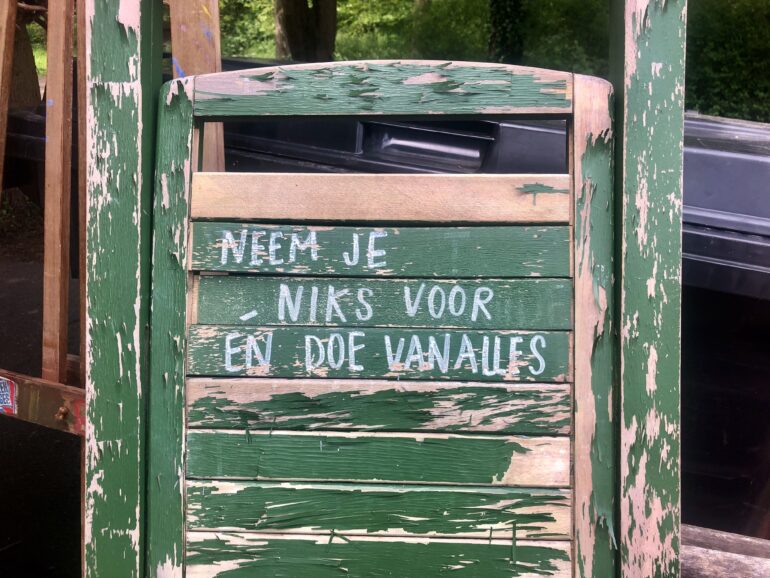 NEEM JE
NIKS VOOR
ÉN DOE VANALLES